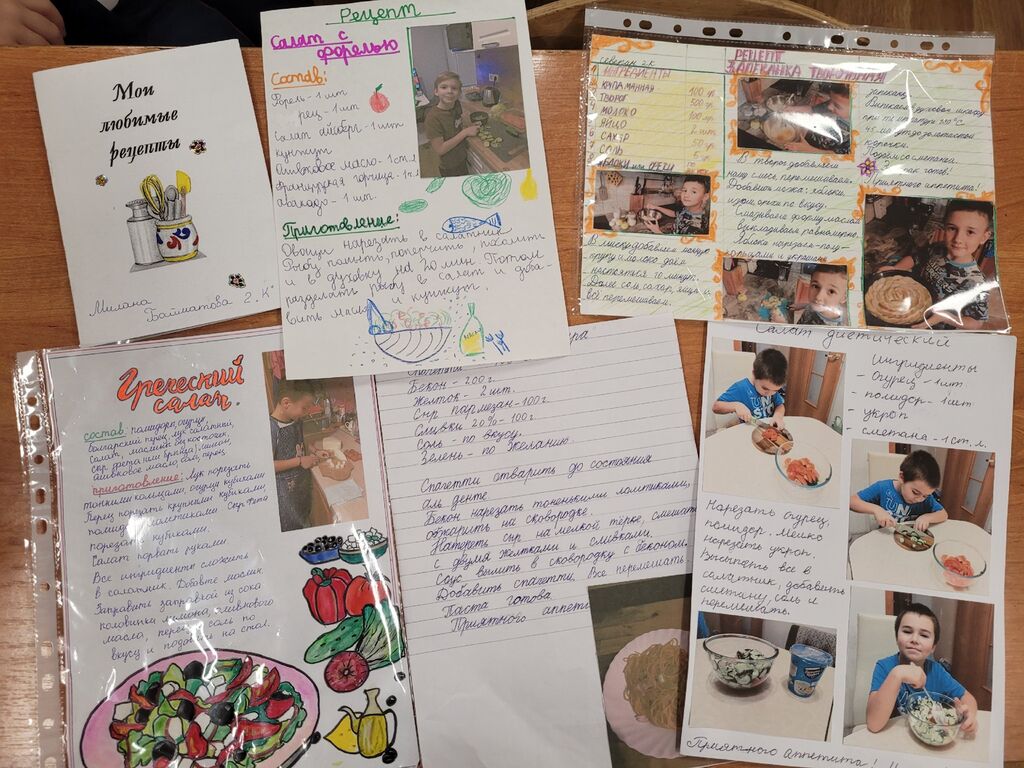 Мои
любимые
рецепты
Милана
Байматова 2 "К"
Рецепт
Салат с
форелью
Состав:
Форель - 1 шт
перец - 1 шт
Салат айсберг - 1 шт
кунжут
Оливковое масло - 1 ст.л
Французская горчица - 1 ч.л
авокадо - 1 шт.
Приготовление:
Овощи нарезать в салатник
Рыбу помыть, поперчить, посолить
и в духовку на 20 мин. Потом
разделать рыбу в салат и доба-
вить масло и кунжут.
РЕЦЕПТ
ЗАПЕКАНКА ТВОРОЖНАЯ
2 К
ИНГРЕДИЕНТЫ
КРУПА МАННАЯ 100 гр.
ТВОРОГ 500 гр.
МОЛОКО 100 гр.
ЯЙЦО 2 шт.
САХАР 50 гр.
СОЛЬ
ЯБЛОКИ ИЛИ ОРЕХИ
В миску добавляем манную
крупу и молоко даём
настояться 10 минут.
Далее соль, сахар, яйца и
всё перемешиваем.
В творог добавляем
нашу смесь, перемешиваем.
Добавляем можно: яблоки,
изюм, орехи по вкусу.
Смазываем форму маслом
выкладываем равномерно.
Яблоки нарезаем полу-
кольцами и украшаем
запеканку.
Выпекаем в духовом шкафу
при температуре °C
45 минут до золотистой
корочки.
Подаём со сметаной.
готов!
Приятного аппетита!
Греческий
салат.
состав: помидор, огурец
болгарский перец, лук салатный,
салат, маслины без косточек,
сыр фета (или брынза), лимон,
оливковое масло, соль, перец
приготовление: Лук порезать
тонкими кольцами, огурцы кубиками
Перец порезать крупными кубиками,
помидор ломтиками Сыр Фета
порезать кубиками.
Салат порвать руками.
Все ингредиенты сложить
в салатник. Добавьте маслин.
Заправить заправкой из сока
половинки лимона, оливкового
масла, перец, соль по
вкусу и подавать на стол.
Спагетти
Бекон - 200 г.
Желток - 2 шт.
Сыр пармезан - 100 г.
Сливки 20% - 100 г.
Соль - по вкусу.
Зелень - по желанию.
Спагетти отварить до состояния
аль денте
Бекон нарезать тоненькими ломтиками,
обжарить на сковородке.
Натереть сыр на мелкой терке, смешать
с двумя желтками и сливками.
Соус вылить в сковородку с беконом.
Добавить спагетти. Все перемешать.
Паста готова.
Приятного аппети
Салат диетический
Ингридиенты
- Огурец - 1 шт
- помидор - 1 шт
- укроп
- сметана - 1 ст. л.
Нарезать огурец,
помидор. Мелко
нарезать укроп.
Высыпать все в
салатник, добавить
сметану, соль и
перемешать.
Приятного аппетита!